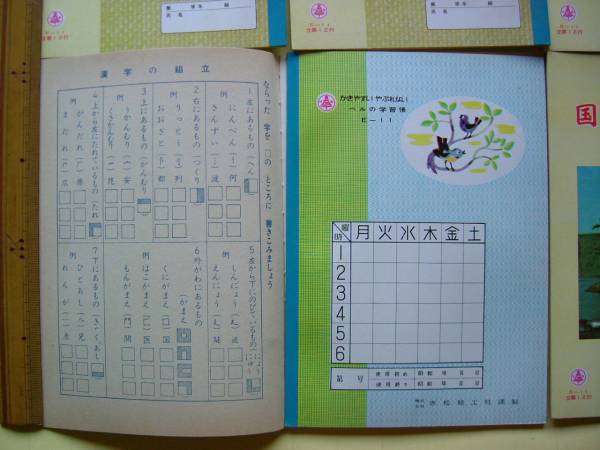 漢字の組立
ならった 字を □の ところに 書きこみましょう
1 左にあるもの(へん)
例
にんべん(亻)何
さんずい(氵)波
2 右にあるもの(つくり)
りっとう(刂)列
おおざと(阝)都
3 上にあるもの(かんむり)
例
うかんむり(宀)安
くさかんむり(艹)花
4 上から左にたれているもの(たれ)
例
がんだれ(厂)原
まだれ(广)広
5 左から下にのびているもの(にょう)
例
しんにょう(辶)速
えんにょう(廴)延
6 外がわにあるもの(かまえ)
例
くにがまえ(囗)国
はこがまえ(匚)医
もんがまえ(門)間
7 下にあるもの(きゃく,あし)
例
ひとあし(儿)兄
れんが(灬)点
かきやすいやぶれない
ベルの学習帳
E-11
曜
時
月火水木金土
1
2
3
4
5
6
第 号
使用初め 昭和 年 月 日
使用終り 昭和 年 月 日
株式会社 赤松紙工社謹製
学年 組
氏名
学年 組
氏名
国